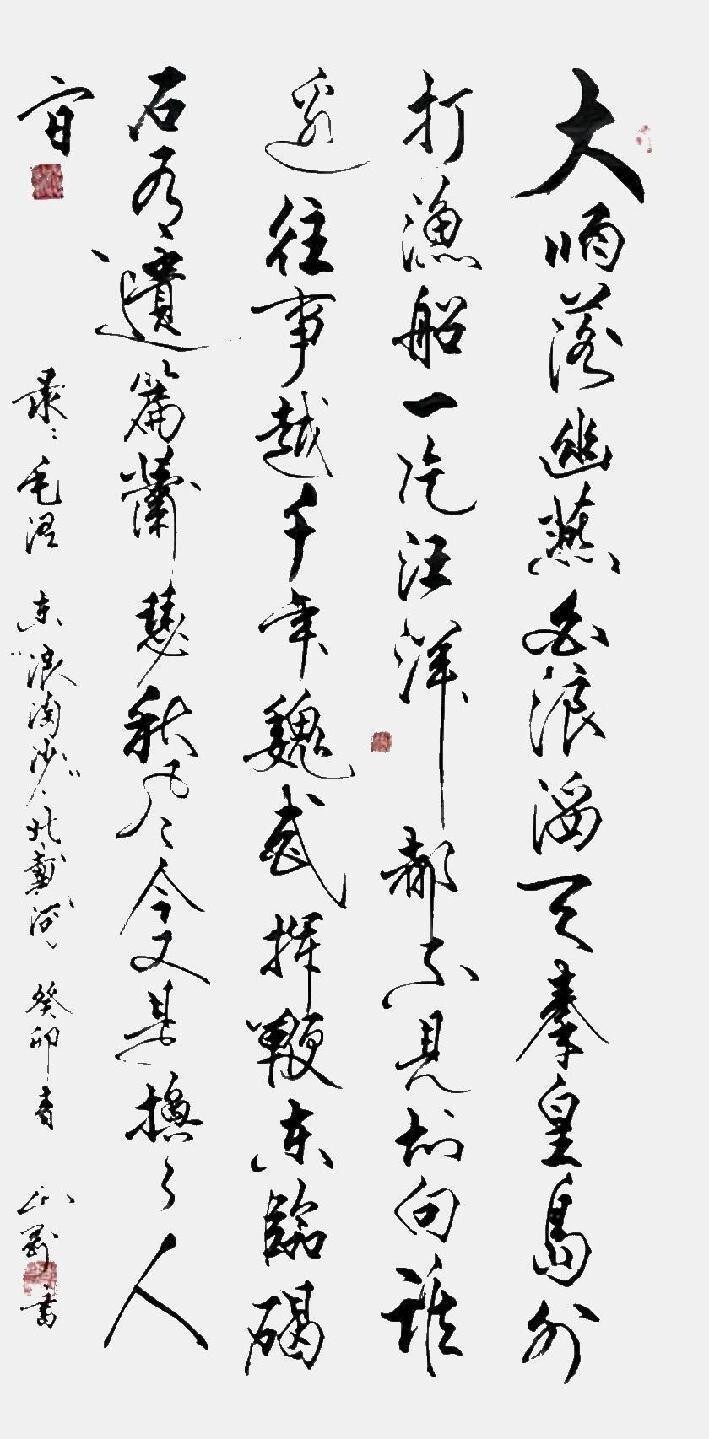 大雨落幽燕白浪滔天秦皇島外
打漁船一片汪洋都不見知向誰
邊往事越千年魏武揮鞭東臨碣
石有遺篇蕭瑟秋風今又是換了人
間
錄毛澤東浪淘沙北戴河 癸卯春 書